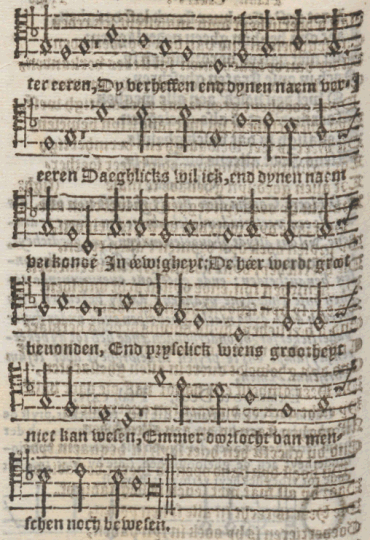 ter eeren, Dy verheffen end dynen naem ver-
eeren Daeghlicks wil ick, end dynen naem
verkondē In ëwigheyt: De hær werdt groot
beuonden, End pryselick wiens grootheyt
niet kan wesen, Emmer doorsocht van men-
schen noch bewesen.